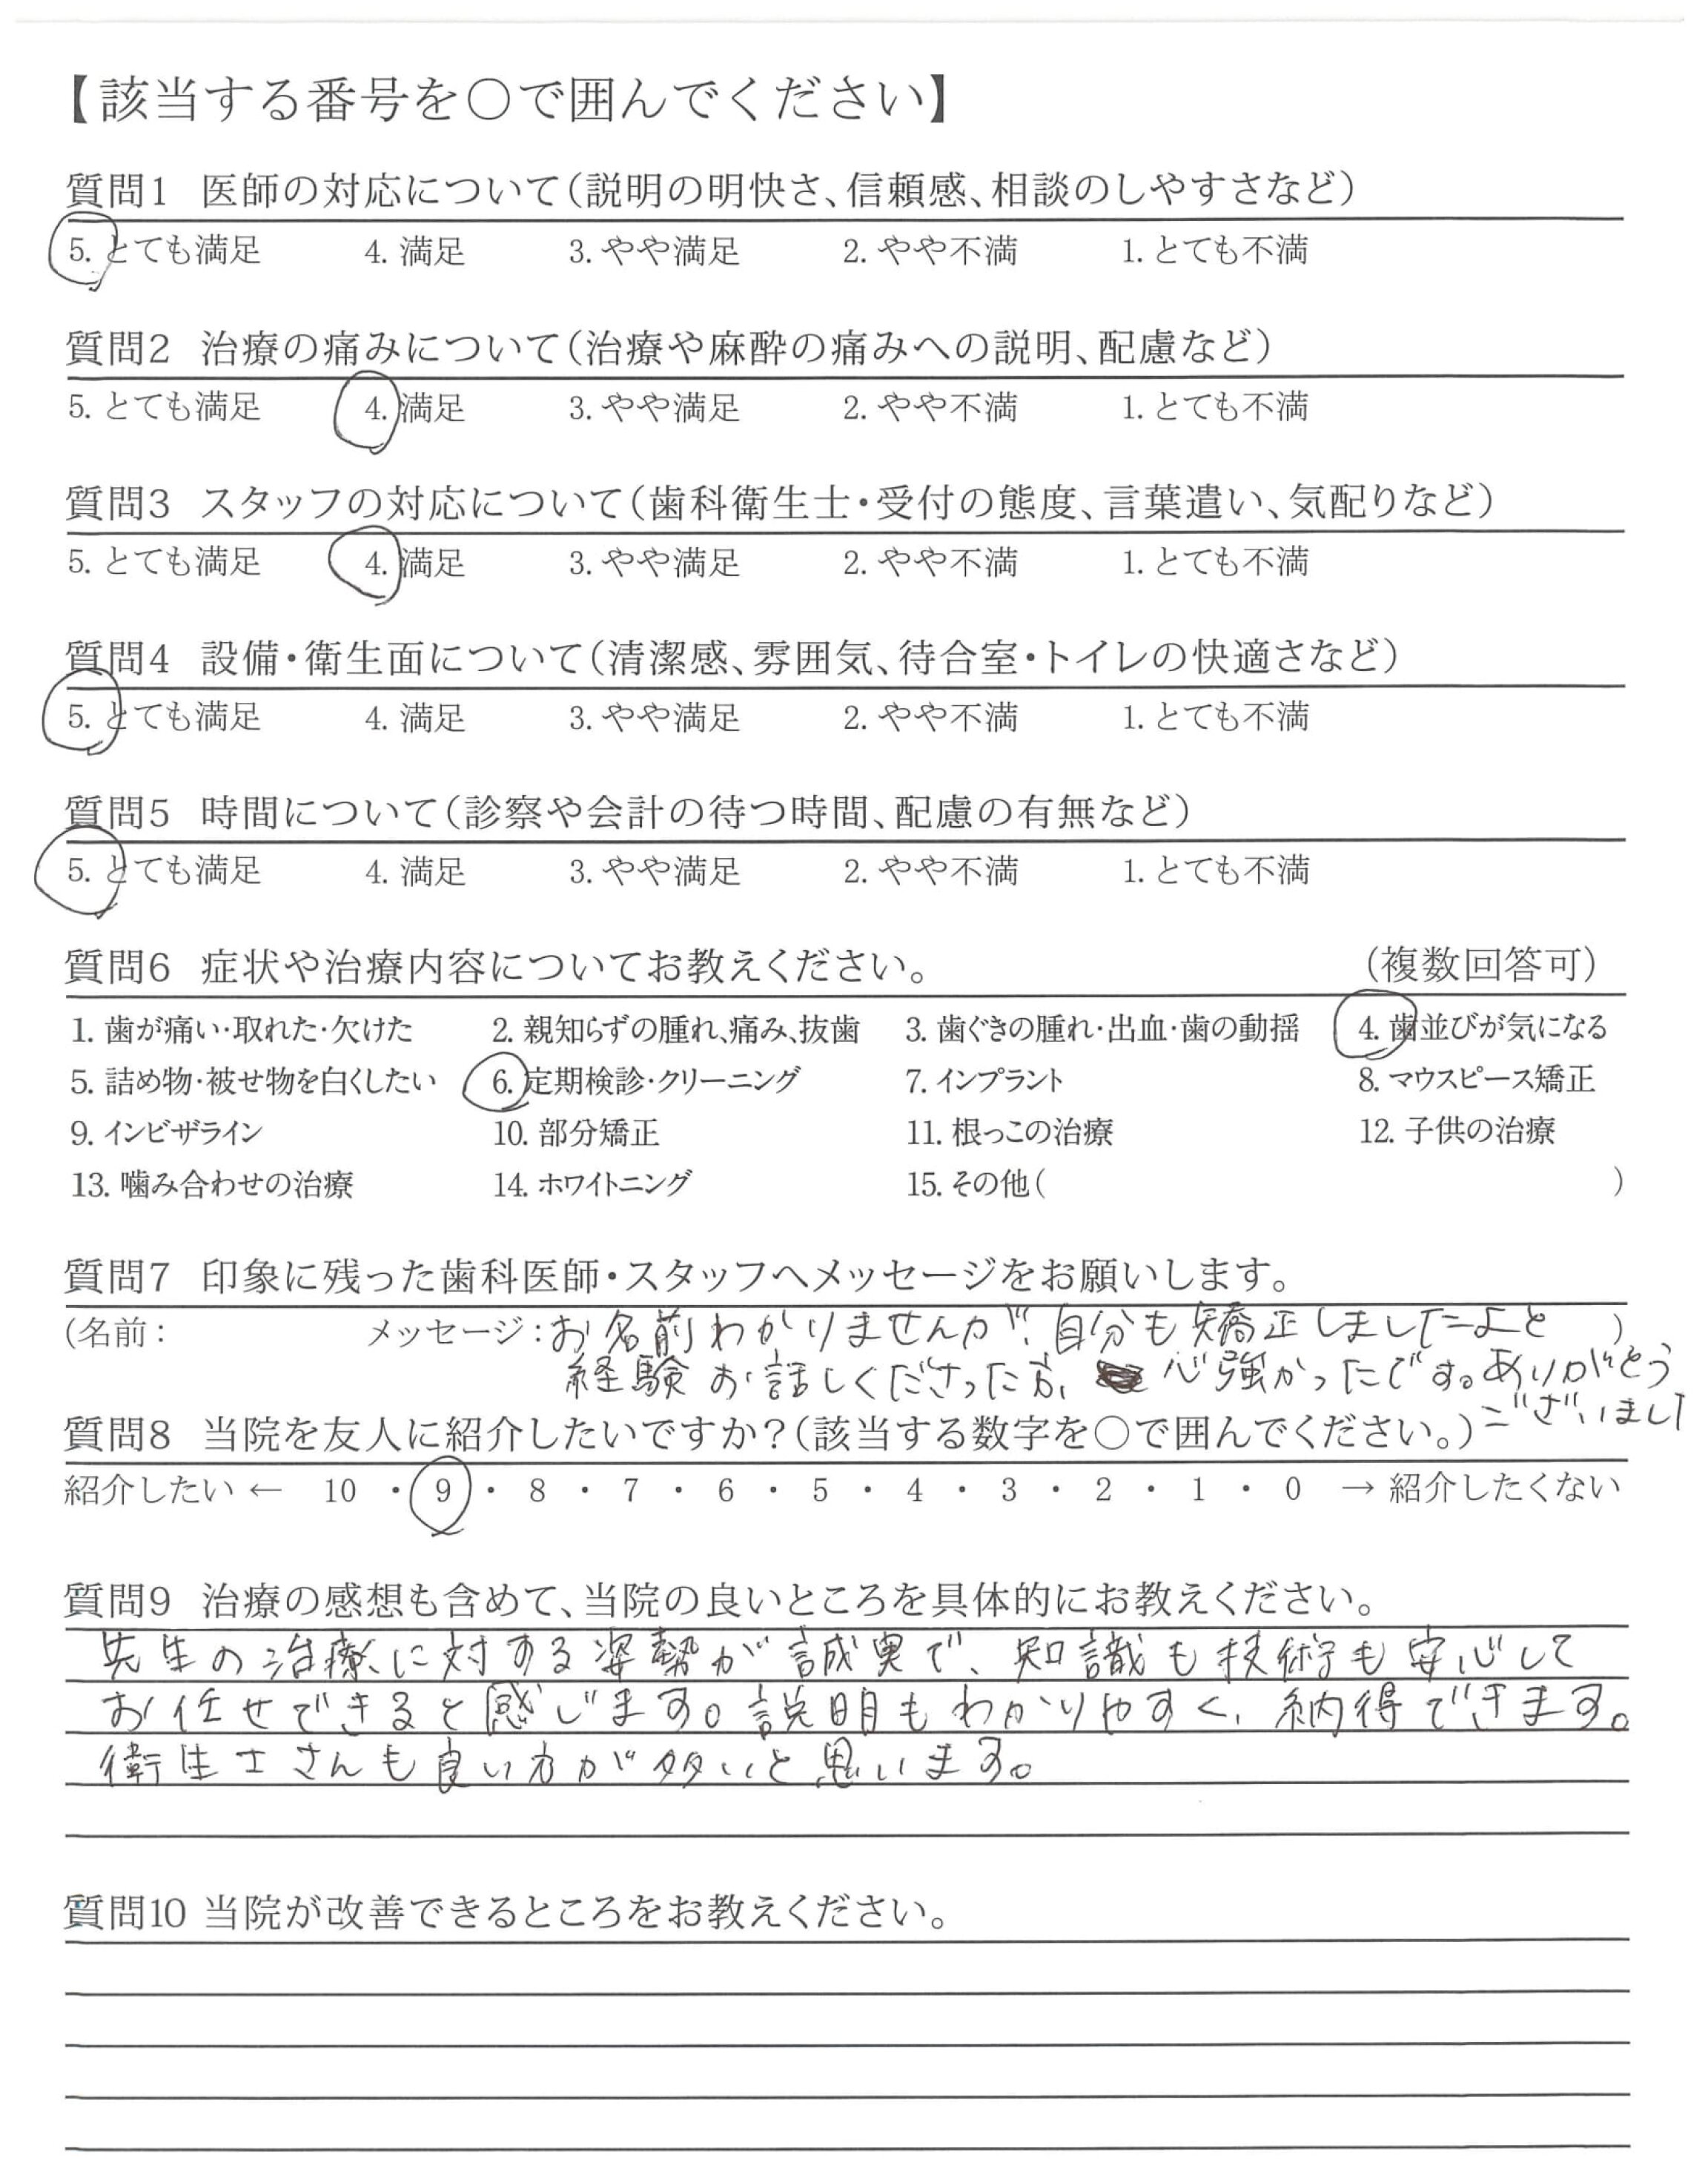 【該当する番号を○で囲んでください】
質問1 医師の対応について(説明の明快さ、信頼感、相談のしやすさなど)
5. とても満足 4. 満足 3. やや満足 2. やや不満 1. とても不満
質問2 治療の痛みについて(治療や麻酔の痛みへの説明、配慮など)
5. とても満足 4. 満足 3. やや満足 2. やや不満 1. とても不満
質問3 スタッフの対応について(歯科衛生士・受付の態度、言葉遣い、気配りなど)
5. とても満足 4. 満足 3. やや満足 2. やや不満 1. とても不満
質問4 設備・衛生面について(清潔感、雰囲気、待合室・トイレの快適さなど)
5. とても満足 4. 満足 3. やや満足 2. やや不満 1. とても不満
質問5 時間について(診察や会計の待つ時間、配慮の有無など)
5. とても満足 4. 満足 3. やや満足 2. やや不満 1. とても不満
質問6 症状や治療内容についてお教えください。 (複数回答可)
1. 歯が痛い・取れた・欠けた 2. 親知らずの腫れ、痛み、抜歯 3. 歯ぐきの腫れ・出血・歯の動揺 4. 歯並びが気になる
5. 詰め物・被せ物を白くしたい 6. 定期検診・クリーニング 7. インプラント 8. マウスピース矯正
9. インビザライン 10. 部分矯正 11. 根っこの治療 12. 子供の治療
13. 噛み合わせの治療 14. ホワイトニング 15. その他( )
質問7 印象に残った歯科医師・スタッフへメッセージをお願いします。
(名前: メッセージ:お名前わかりませんが、自分も矯正しましたよと )
経験お話しくださった方、心強かったです。ありがとう
ございまし
質問8 当院を友人に紹介したいですか?(該当する数字を○で囲んでください。)
紹介したい ← 10 ・ 9 ・ 8 ・ 7 ・ 6 ・ 5 ・ 4 ・ 3 ・ 2 ・ 1 ・ 0 → 紹介したくない
質問9 治療の感想も含めて、当院の良いところを具体的にお教えください。
先生の治療に対する姿勢が誠実で、知識も技術も安心して
お任せできると感じます。説明もわかりやすく、納得できます。
衛生士さんも良い方が多いと思います。
質問10 当院が改善できるところをお教えください。